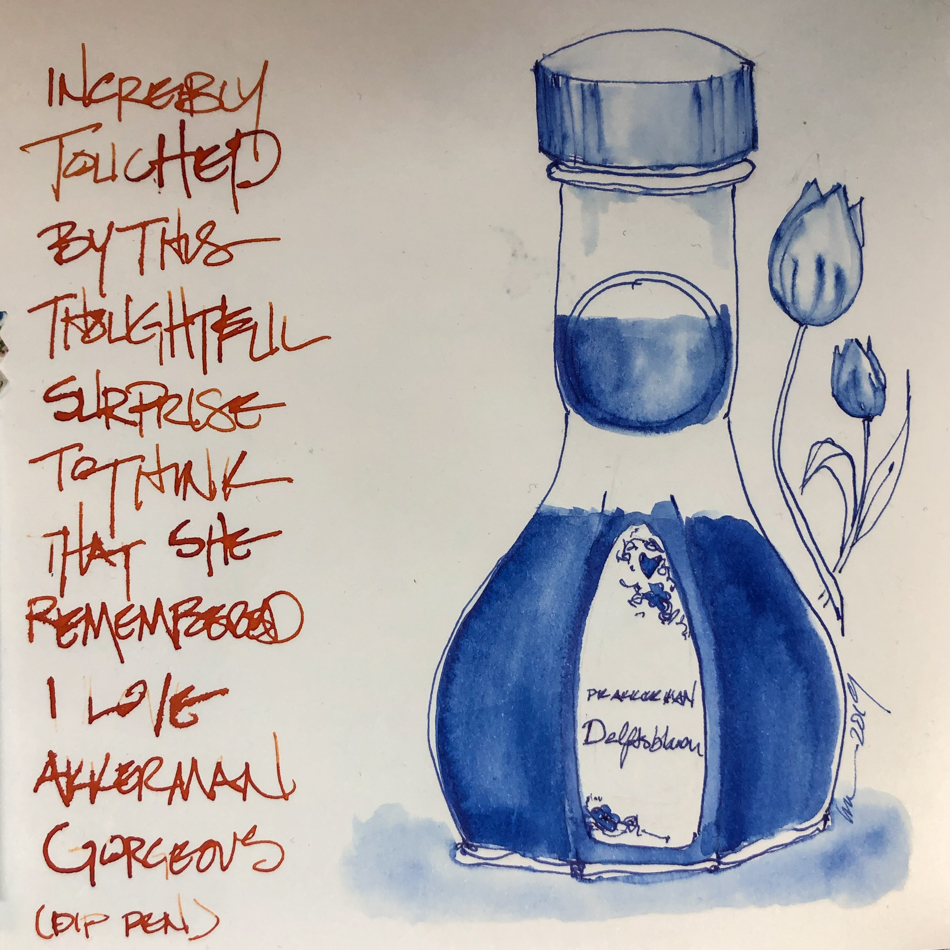 INCREBLY
TOUCHED
BY THIS
THOUGHTFULL
SURPRISE
TO THINK
THAT SHE
REMEMBERED
I LOVE
AKKERMAN
GORGEOUS
(DIP PEN)
PW AKKERMAN
Delftsblauw
2019